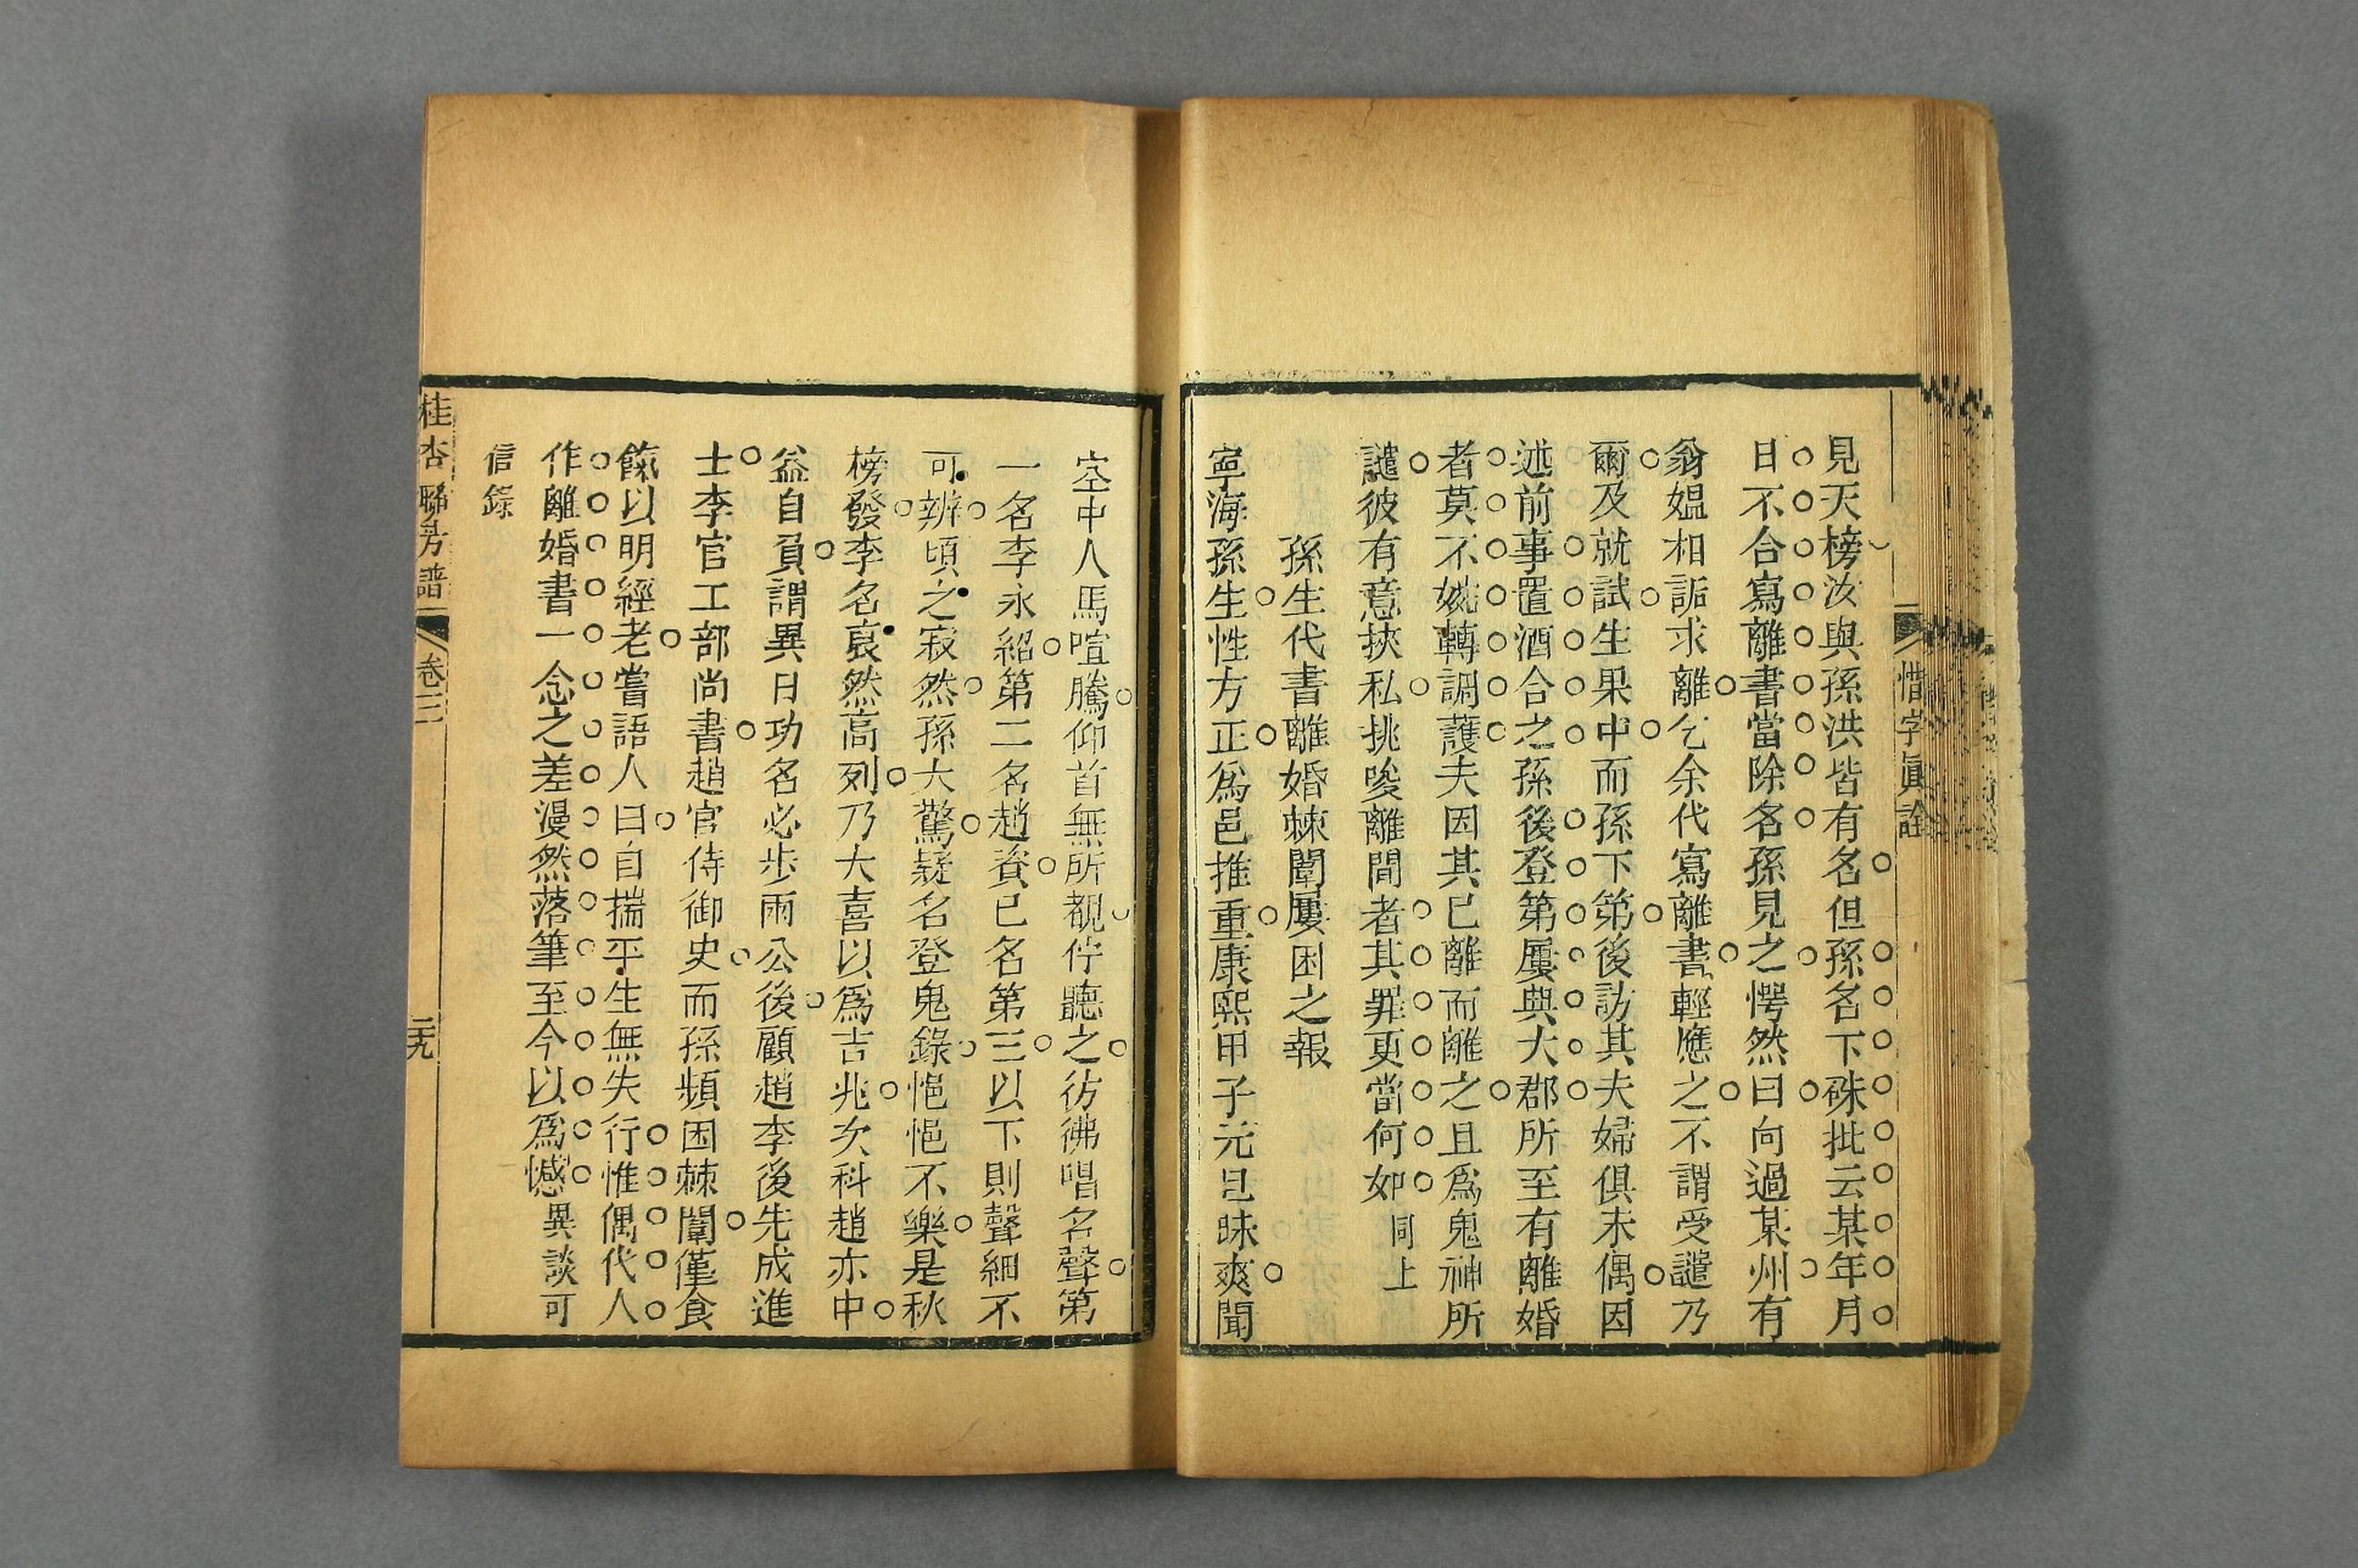 惜字眞詮
見天榜汝與孫洪皆有名但孫名下硃批云某年月
日不合寫離書當除名孫見之愕然曰向過某州有
翁媼相詬求離乞余代寫離書輕應之不謂受譴乃
爾及就試生果中而孫下第後訪其夫婦俱未偶因
述前事置酒合之孫後登第屢典大郡所至有離婚
者莫不婉轉調護夫因其已離而離之且爲鬼神所
譴彼有意挾私挑唆離間者其罪更當何如同上
孫生代書離婚棘闈屢困之報
寧海孫生性方正爲邑推重康熙甲子元旦昧爽聞
空中人馬喧騰仰首無所覩佇聽之彷彿唱名聲第
一名李永紹第二名趙資已名第三以下則聲細不
可辨頃之寂然孫大驚疑名登鬼錄悒悒不樂是秋
榜發李名裒然高列乃大喜以爲吉兆次科趙亦中
益自負謂異日功名必步兩公後顧趙李後先成進
士李官工部尚書趙官侍御史而孫頻困棘闈僅食
餼以明經老嘗語人曰自揣平生無失行惟偶代人
作離婚書一念之差漫然落筆至今以爲憾異談可
信錄
桂杏聯芳譜 卷三 二九